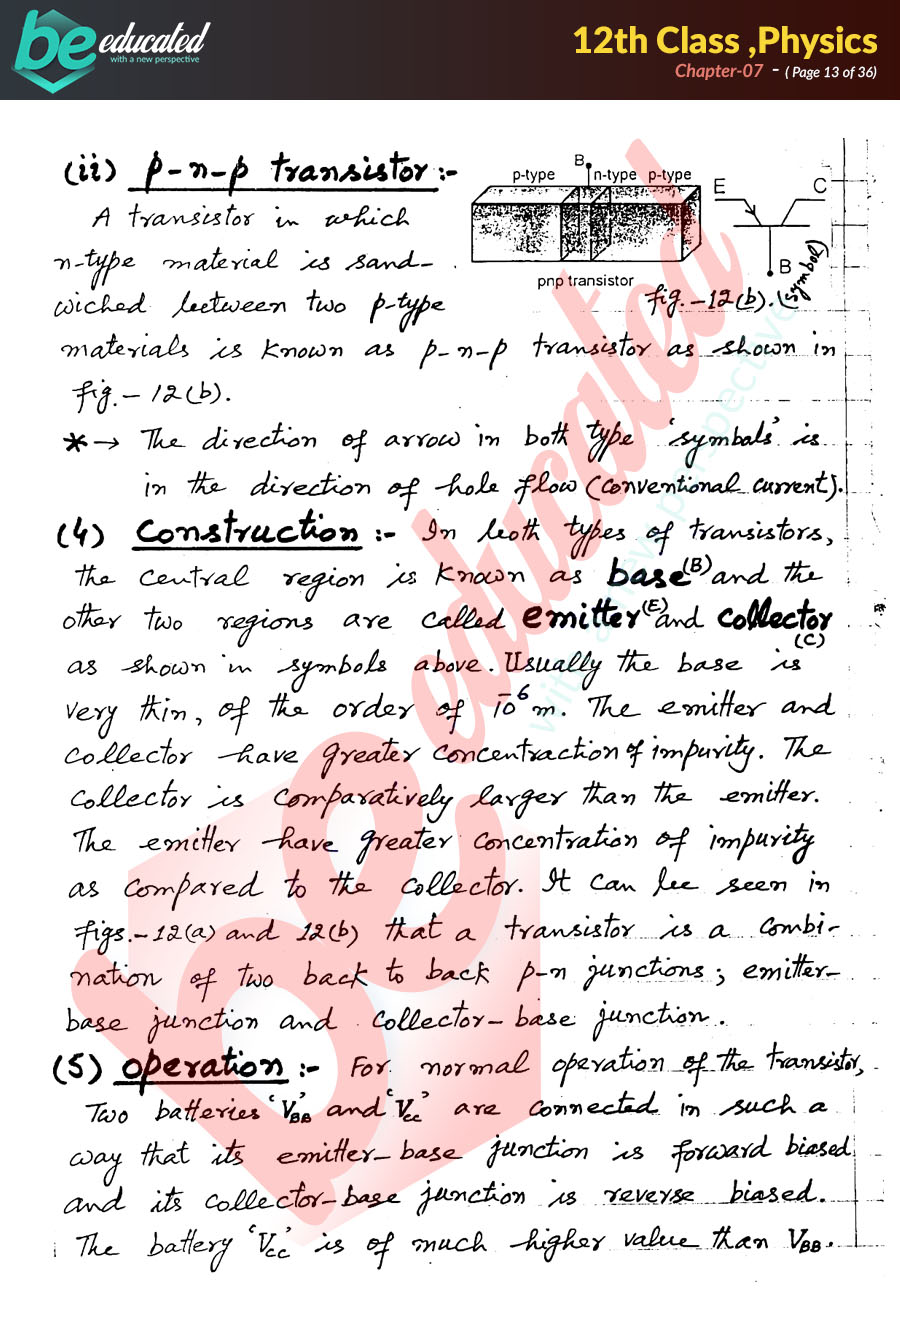 be educated
with a new perspective
12th Class ,Physics
Chapter-07 - ( Page 13 of 36)
(ii) p-n-p transistor :-
B
p-type n-type p-type
E C
B
pnp transistor
fig.-12(b). (symbol)
A transistor in which
n-type material is sand-
wiched between two p-type
materials is known as p-n-p transistor as shown in
fig.-12(b).
*→ The direction of arrow in both type 'symbols' is
in the direction of hole flow (conventional current).
(4) Construction :- In both types of transistors,
the central region is known as base(B) and the
other two regions are called emitter(E) and collector
(C)
as shown in symbols above. Usually the base is
very thin, of the order of 10⁻⁶m. The emitter and
collector have greater concentraction of impurity. The
collector is comparatively larger than the emitter.
The emitter have greater concentration of impurity
as compared to the collector. It can be seen in
figs.-12(a) and 12(b) that a transistor is a combi-
nation of two back to back p-n junctions; emitter-
base junction and collector-base junction.
(5) operation :- For normal operation of the transistor,
Two batteries 'VBB' and 'Vcc' are connected in such a
way that its emitter-base junction is forward biased
and its collector-base junction is reverse biased.
The battery 'Vcc' is of much higher value than VBB.
be educated
with a new perspective